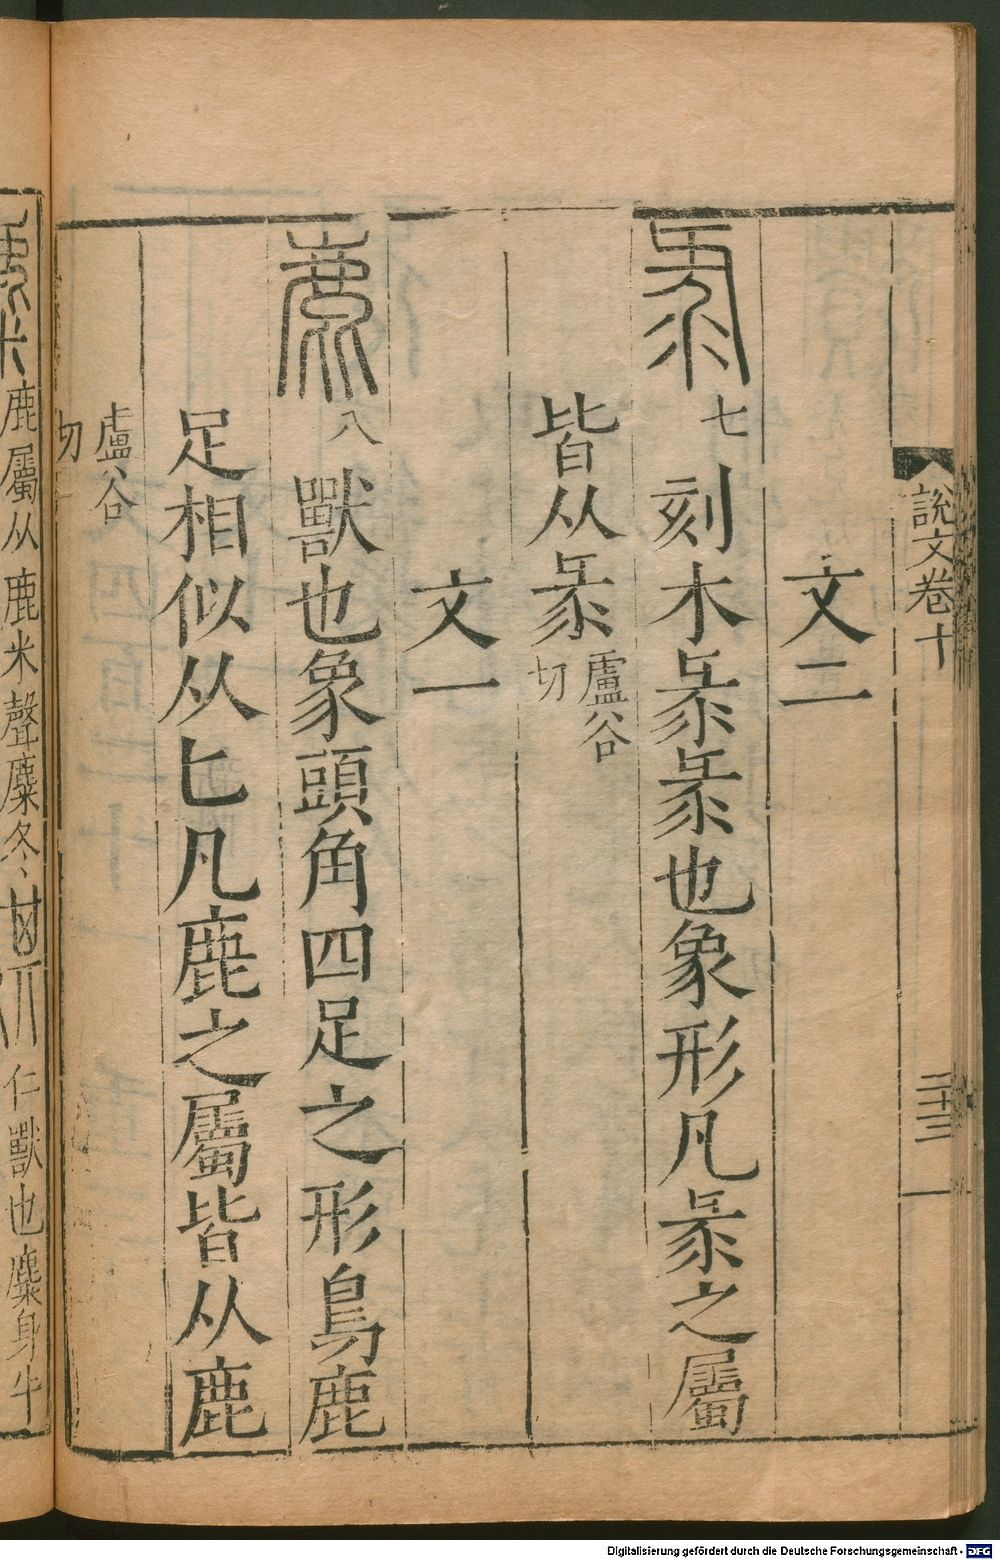 說文卷十
二十三
文二
七 刻木彔彔也象形凡彔之屬
皆从彔 盧谷切
文一
八 獸也象頭角四足之形鳥鹿
足相似从匕凡鹿之屬皆从鹿
盧谷
切
鹿屬从鹿米聲麋冬
仁獸也麋身牛
Digitalisierung gefördert durch die Deutsche Forschungsgemeinschaft - DFG